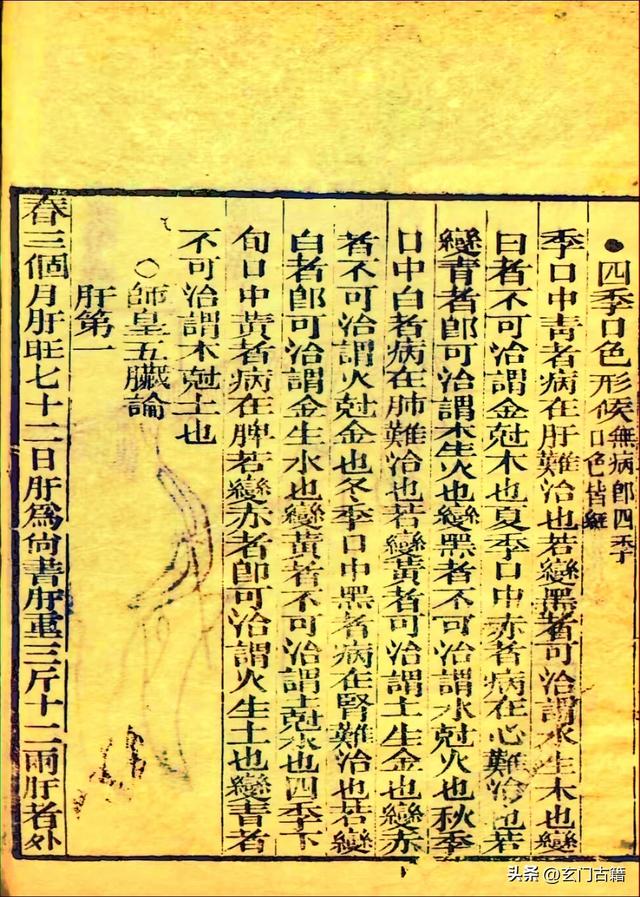 ●四季口色形候
無病卽四季
口色皆紅
季口中青者病在肝難治也若變黑者可治謂水生木也變
白者不可治謂金尅木也夏季口中赤者病在心難治也若
變青者卽可治謂木生火也變黑者不可治謂水尅火也秋季
口中白者病在肺難治也若變黃者可治謂土生金也變赤
者不可治謂火尅金也冬季口中黑者病在腎難治也若變
白者卽可治謂金生水也變黃者不可治謂土尅水也四季下
旬口中黃者病在脾若變赤者卽可治謂火生土也變青者
不可治謂木尅土也
○師皇五臟論
肝第一
春三個月肝旺七十二日肝為尚書肝重三斤十二兩肝者外
头条 @玄门古籍